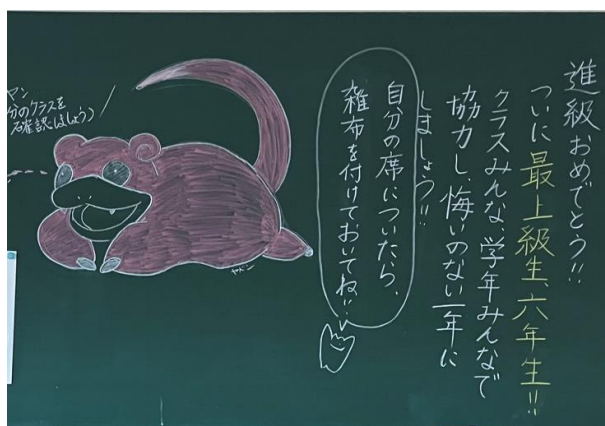 進級おめでとう!!
ついに最上級生、六年生!!
クラスみんな、学年みんなで
協力し、悔いのない一年に
しましょう!!
自分の席についたら、
雑布を付けておいてね!!
ヤドン
ヤン
分のクラスを
確認しましょう